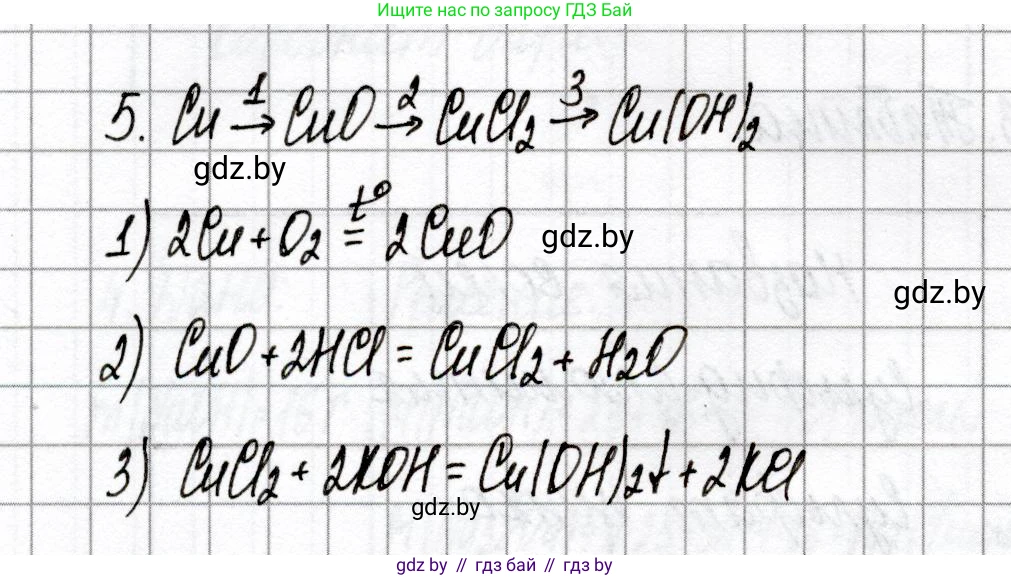 Ищите нас по запросу ГДЗ Бай
5. Cu →¹ CuO →² CuCl₂ →³ Cu(OH)₂
gdz.by
1) 2Cu + O₂ =ᵗ° 2CuO
gdz.by
gdz.by
2) CuO + 2HCl = CuCl₂ + H₂O
3) CuCl₂ + 2KOH = Cu(OH)₂↓ + 2KCl
gdz.by
gdz.by // гдз бай // gdz by